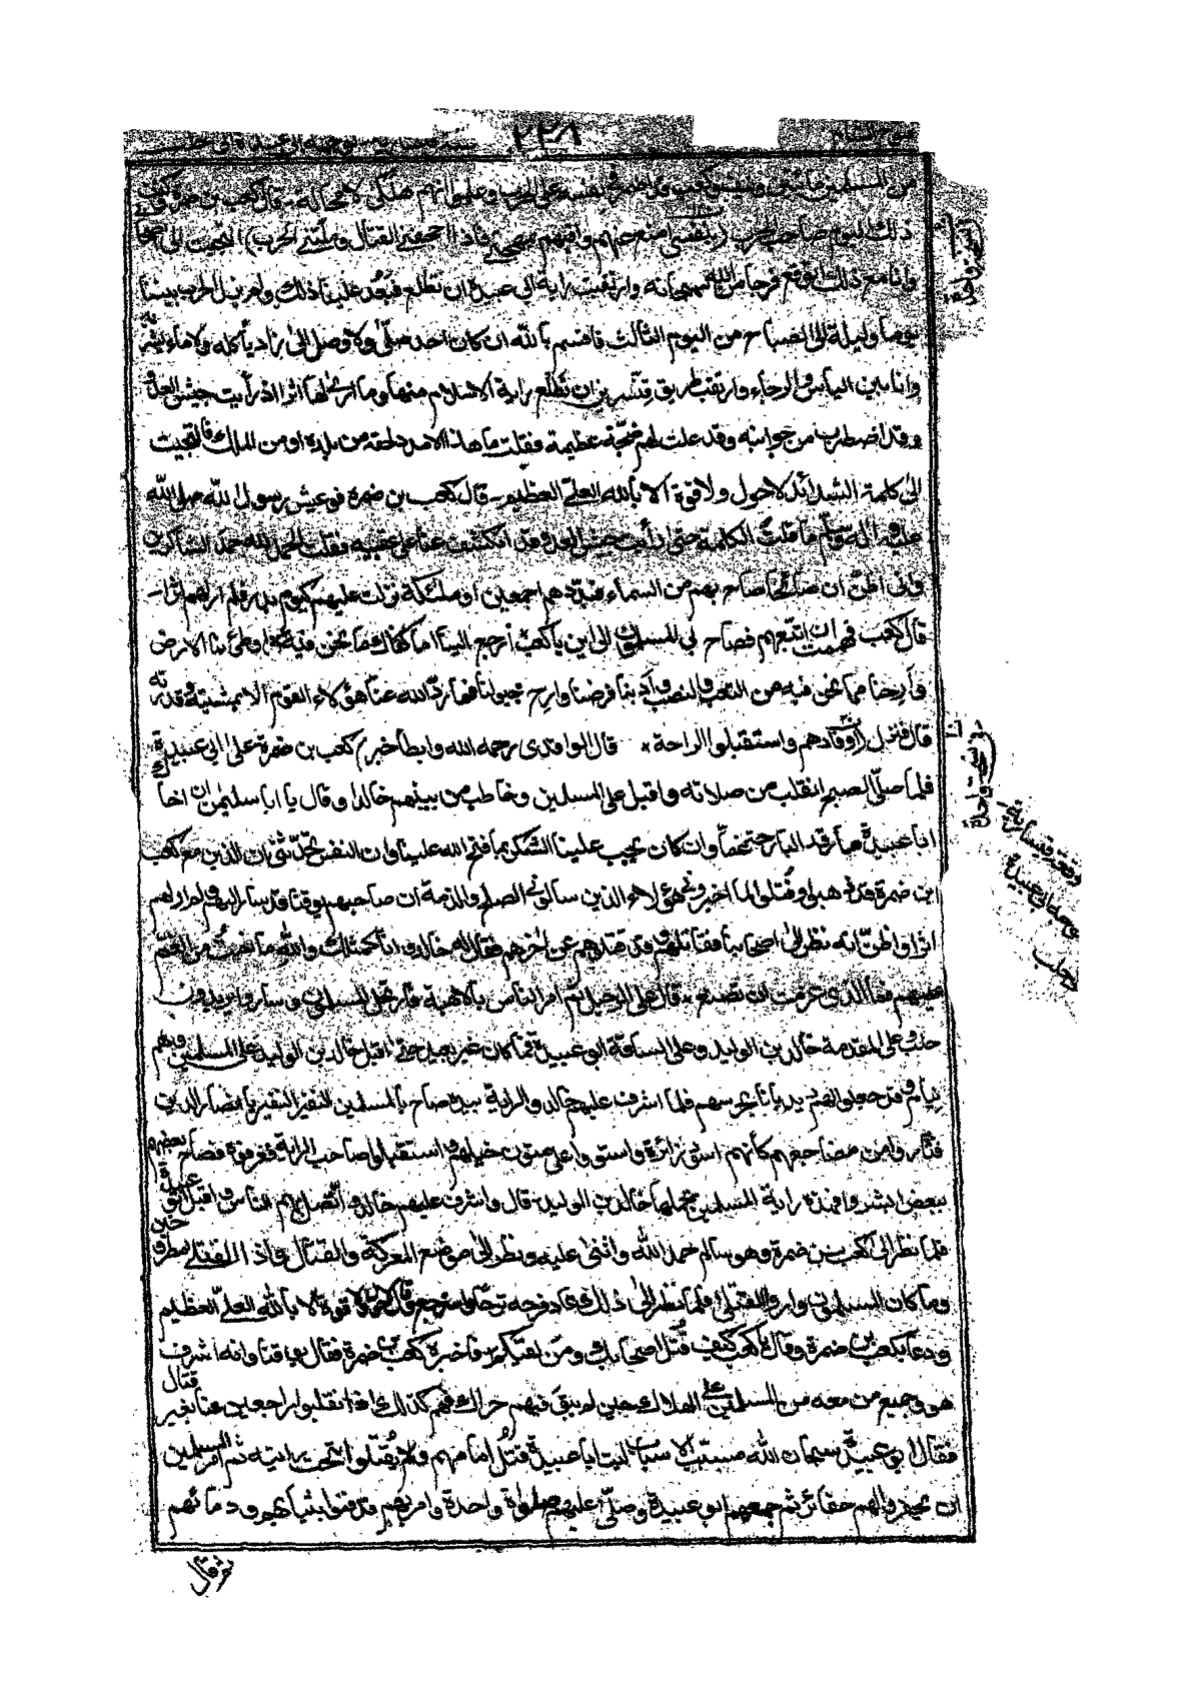 ٢٢٨
من المسلمين مائتين ونيف وكعب قد اضمر في نفسه على الحرب وعلموا انهم هلكى لا محالة قال كعب بن ضمرة وكنت
ذلك اليوم صاحب الحرب بنفسى امنع جهتهم وافيهم بمهجتى فاذا اجحفنى القتال وملتنى الحرب التجيت الى اصحابى
وانا مع ذلك اتوقع فرجا من الله سبحانه وارتقبت راية ابى عبيدة ان تطلع فبعد علينا ذلك ولم يزل الحرب بيننا
يوما وليلة الى الصباح من اليوم الثالث فاقسم بالله ان كان احد صلى ولا وصل الى زاد يأكله ولا ماء يشربه
وانا بين اليأس والرجاء وارتقب طريق قنسرين ان تطلع راية الاسلام منها وما ارى لها اثرا اذ رأيت جيش العدو
وقد اضطرب من جوانبه وقد علت لهم ضجة عظيمة فقلت ما هذا الا مدد لحقه من بلده او من الملك فالتجيت
الى كلمة الشدائد لا حول ولا قوة الا بالله العلى العظيم قال كعب بن ضمرة فو عيش رسول الله صلى الله
عليه واله وسلم ما قلت الكلمة حتى رأيت جيش العدو قد انكشف عنا على عقبيه فقلت الحمد لله حمد الشاكرين
وانى اظن ان صائحا صاح بهم من السماء فبددهم اجمعين او ملئكة نزلت عليهم كيوم بدر فلم ار لهم اثرا
قال كعب فهممت ان اتبعهم فصاح بى المسلمون الى اين ياكعب ارجع الينا اما كفاك ما نحن فيه وطئ بنا الارض
وارحنا مما نحن فيه من التعب والنصب وأد بنا فرضنا وارح خيولنا فما رد الله عنا هؤلاء القوم الا بمشيته وقدرته
قال فنزل واستقبلوا الراحة * قال الواقدى رحمه الله وابطأ خبر كعب بن ضمرة على ابى عبيدة
فلما صلى الصبح انقلب من صلاته واقبل على المسلمين وخاطب من بينهم خالدا وقال يا ابا سليمن ان اخاك
ابا عبيدة ما رقد البارحة وان كان يجب علينا الشكر بما فتح الله علينا وان النفس تحدثنى ان الذين مع كعب
ابن ضمرة قد وقتلوا لما اخبرونى هؤلاء الذين سألونى الصلح والذمة ان صاحبهم يوقنا قد سار اليهم ولم ار لهم
اثرا واظن انه نظر الى اصحابنا فقاتلهم وقد قتلهم عن اخرهم فقال له خالد وانا كمثلك والله ما نمت من الغم
عليهم فما الذى عزمت ان تصنع قال على الرحيل ثم امر الناس بالاهبة فارتحل المسلمون وساروا يريدون
حلب وعلى المقدمة خالد بن الوليد وعلى الساقة ابو عبيدة فما كان غير بعيد حتى اقبل خالد بن الوليد على المسلمين وهم
نيام وقد جعلوا لهم يحرسهم فلما اشرف عليهم خالد والراية بيده صاح بالمسلمين النفير النفير يا انصار الدين
فثاروا من مضاجعهم كأنهم اسد زائرة واستووا على متون خيلهم واستقبلوا صاحب الراية فعرفوه فصاح بعضهم
ببعض ابشروا فهذه راية المسلمين يحملها خالد بن الوليد قال واشرف عليهم خالد واتصل بهم الناس واقبل ابو عبيدة
فلما نظر الى كعب بن ضمرة وهو سالم حمد الله واثنى عليه ونظر الى موضع المعركة والقتال واذا القتلى مطرحين
وما كان المسلمون واروا القتلى فلما نظر الى ذلك عاد فرحه ترحا واسترجع وقال لا حول ولا قوة الا بالله العلى العظيم
ودعا بكعب بن ضمرة وقال يا كعب كيف قتل اصحابك ومن لقيكم فاخبره كعب بن ضمرة فقال يوقنا وانه اشرف
هو وجميع من معه من المسلمين على الهلاك حين لم يبق فيهم حراك فهم كذلك اذا انقلبوا راجعين عنا بغير قتال
فقال ابو عبيدة سبحان الله مسبب الاسباب ليت ابا عبيدة قتل امامهم ولم يقتلوا تحت رايته ثم امر المسلمين
ان يحفروا لهم حفائر ثم جمعهم ابو عبيدة وصلى عليهم صلوة واحدة وامر بهم فدفنوا بثيابهم ودمائهم
ثم قال